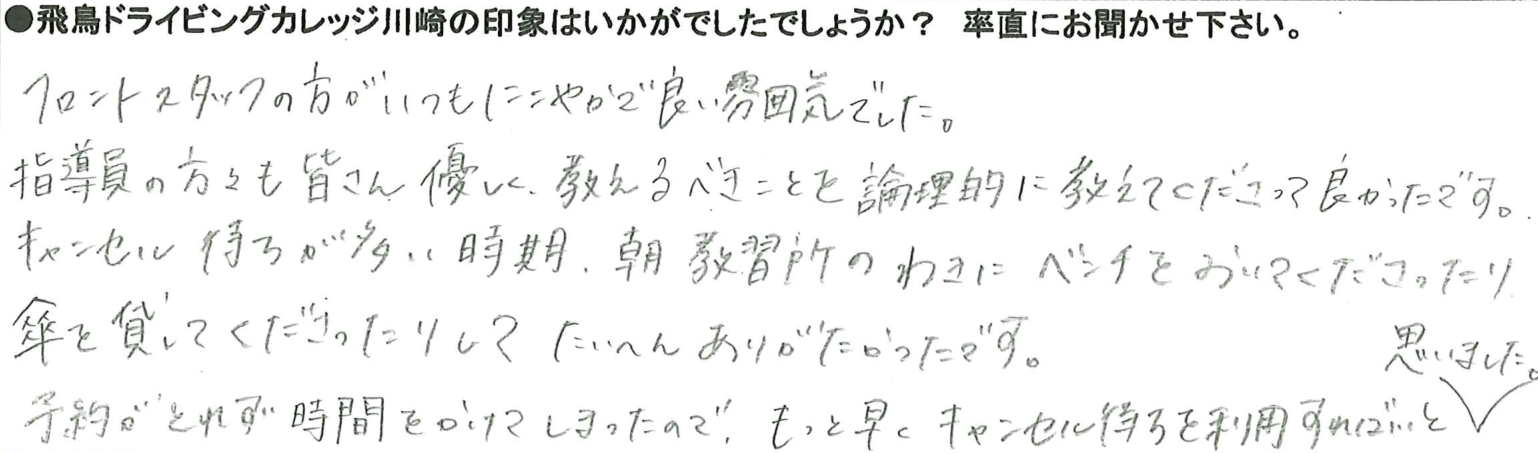 ●飛鳥ドライビングカレッジ川崎の印象はいかがでしたでしょうか？ 率直にお聞かせ下さい。
フロントスタッフの方がいつもにこやかで良い雰囲気でした。
指導員の方々も皆さん優しく、教えるべきことを論理的に教えてくださって良かったです。
キャンセル待ちが多い時期、朝教習所のわきにベンチをおいてくださったり
傘を貸してくださったりしてたいへんありがたかったです。
予約がとれず時間をかけてしまったので、もっと早くキャンセル待ちを利用すればいいと
思いました。